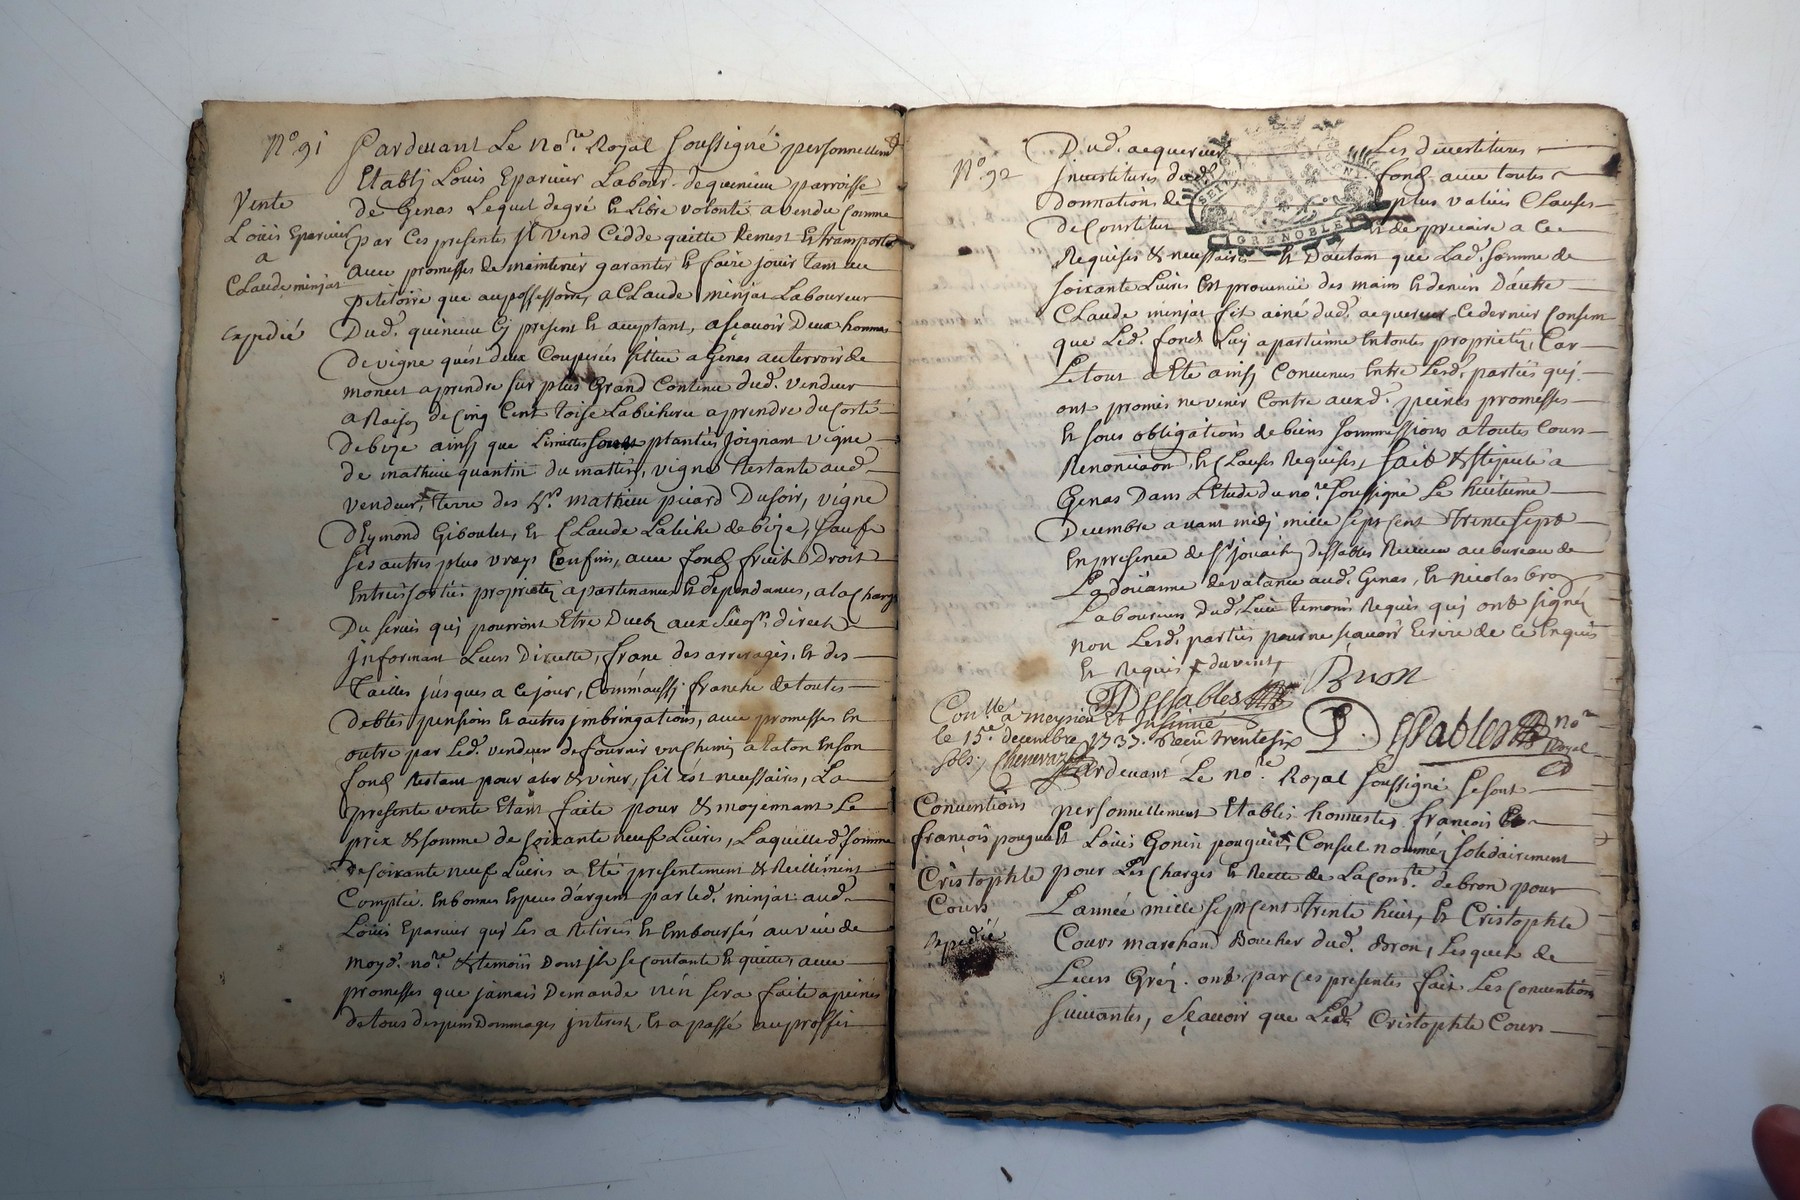 N.° 91
Vente
Louis Eparuier
a
Claude minjat
Expedié
Pardeuant Le no.re Royal soussigné personnellem.t
Etablj Louis Eparuier Labour. de quincieu parroisse
de Genas Lequel de gré & Libre volonté a vendu Comme
par Ces presentes Jl vend Cedde quitte Remest & transporte
auec promesses de maintenir garantir & faire jouir tant au
petitoire que au possessoire, a Claude minjat Laboureur
Dud. quincieu Cy present & acceptant, ascauoir Deux hommes
De vigne quest deux Couperées sittué a Génas au terroir de
a prendre sur plus Grand Contenu dud. vendeur
a Raison de Cinq Cent Toise La bicheree a prendre du Costé
De bize ainsj que Limittes sont plantées Joignant vigne
de mathieu quantin du mattin, vigne Restante aud.
vendeur, Terre des h.rs mathieu picard Dusoir, vigne
D'Eymond Giboulet, & Claude de bize, Saufs
ses autres plus vrays Confins, auec fond fruits Droit
Entrées sorties proprietéz apartenances & dependances, a la charge
Du seruis quj pourront Etre Dueb aux Seig.rs directs
Jnformant Leurs Directte, franc des arrerages, & des
Tailles jusques a Ce jour, Comm'aussj franche de toutes
Debtes pensions & autres jmbringations, auec promesses En
outre par Led. vendeur de fournir vn Chemin a talon En son
fond Restant pour aler & venir, s'il est necessaire, La
presente vente Etant faite pour & moyennant Le
prix & somme de soixante neuf Liures, Laquelle d. somme
de soixante neuf Liures a Eté presentement & Reellement
Comptée. En bonnes Especes d'argent par led. minjat aud.
Louis Eparuier quj Les a Retirées & Emboursés au veu de
Moyd. no.re & temoins Dont Jl se contente & quitte, auec
promesses que jamais Demande n'en sera faite a peines
de tous despens Dommages jnterest, & a passé au proffit
N.° 92
Dud. acquereur Les diuestitures
Jnuestitures dud. fond auec toutes
Donnations de plus values Clauses
de Constitut & de precaire a ce
Requises & necessaires & Dautant que Lad. somme de
soixante Liures Est prouenüe des mains & deniers D'autre
Claude minjat fils ainé dud. acquereur Ce dernier Consent
que Led. fond Luy apartienne En toutes proprietéz, Car
Le tout a Eté ainsj Conuenus Entre Lesd. parties quj
ont promis ne venir Contre auxd. peines promesses
& sous obligations de biens sommissions a toutes Cours
Renonciaon, & Clauses Requises, fait & stipulé a
Genas Dans L'Etude du no.re soussigné Le huitieme
Decembre auant midj mille sept cent Trente Sept
En presence de s.r jouachin dessables Receueur au bureau de
La doüanne de valance aud. Genas, & nicolas broz
Laboureur dud. Lieu temoins Requis quj ont signéz
non Lesd. parties pour ne scauoir Ecrire de ce Enquis
& Requis
Dessables
Con.lle a meysieu et Jnsinué
le 15.e decembre 1737. Receu trentesix
sols.
Dessables no.re Royal
Conuentions
françois pouguet
Cristophle
Cours
Expedié
Pardeuant Le no.re Royal soussigné se sont
personnellement Etablis honnestes françois
& Loüis Gonin pouguet, Consul nomméz solidairement
pour Les charges & Recette de La Com.té de bron pour
L'année mille sept cent trente huit, & Cristophle
Cours marchand Boucher dud. Bron, Lesquels de
Leurs Gréz. ont par Ces presentes fait Les Conuentions
suiuantes, scauoir que Led. Cristophle Cours
GRENOBLE